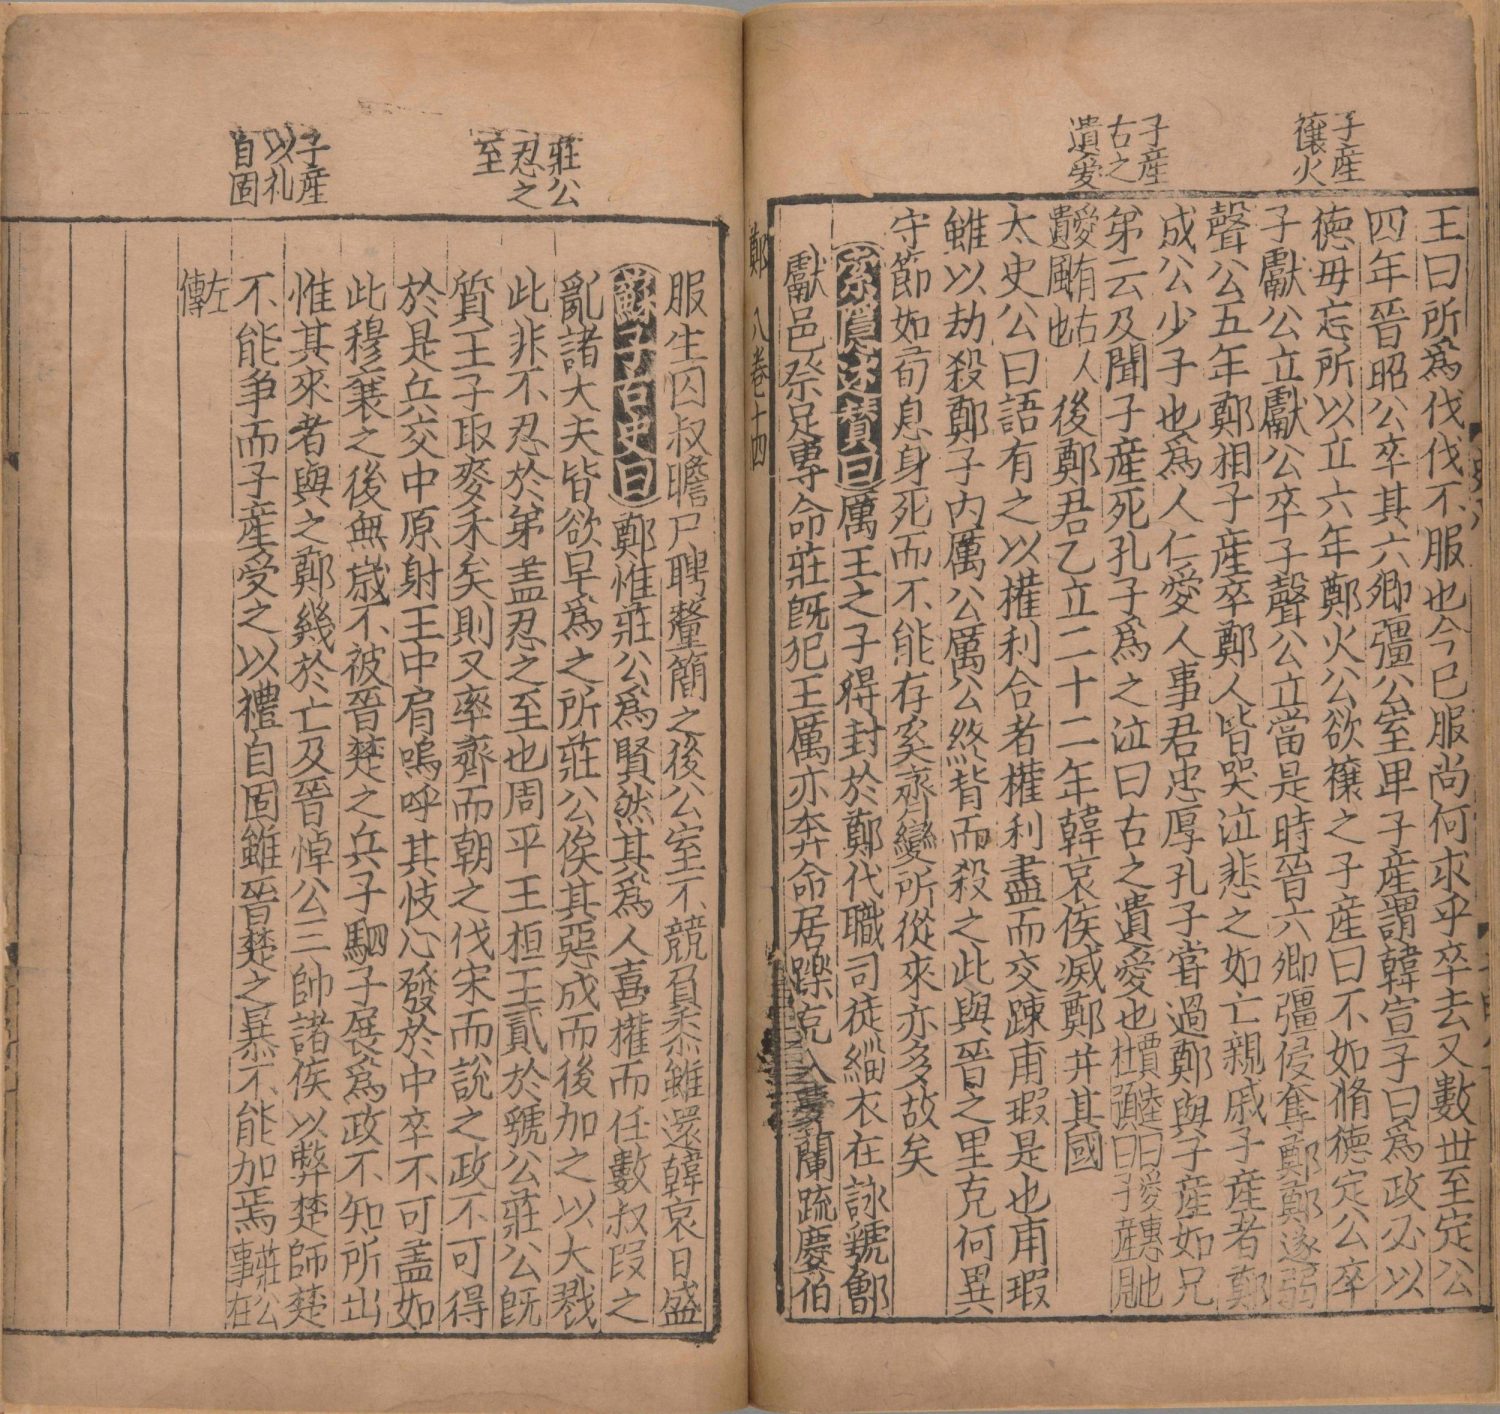 子産
禳火
子産
古之
遺愛
王曰所爲伐伐不服也今已服尚何求乎卒去又數丗至定公
四年晉昭公卒其六卿彊公室卑子産謂韓宣子曰爲政必以
德毋忘所以立六年鄭火公欲禳之子産曰不如脩德定公卒
子獻公立獻公卒子聲公立當是時晉六卿彊侵奪鄭鄭遂弱
聲公五年鄭相子産卒鄭人皆哭泣悲之如亡親戚子産者鄭
成公少子也爲人仁愛人事君忠厚孔子甞過鄭與子産如兄
弟云及聞子産死孔子爲之泣曰古之遺愛也賈逵曰愛惠也杜預曰子産見
愛有古人遺風也後鄭君乙立二十二年韓哀侯滅鄭并其國
太史公曰語有之以權利合者權利盡而交踈甫瑕是也甫瑕
雖以劫殺鄭子内厲公厲公終背而殺之此與晉之里克何異
守節如荀息身死而不能存奚齊變所從來亦多故矣
索隱述贊曰厲王之子得封於鄭代職司徒緇衣在詠虢鄶
獻邑祭足專命莊既犯王厲亦奔命居櫟克入夢蘭疏慶伯
鄭 八卷十四
莊公
忍之
至
子産
以礼
自固
服生囚叔瞻尸聘釐簡之後公室不競負黍雖還韓哀日盛
蘇子古史曰鄭惟莊公爲賢然其爲人喜權而任數叔段之
亂諸大夫皆欲早爲之所莊公俟其惡成而後加之以大戮
此非不忍於弟盖忍之至也周平王桓王貳於虢公莊公既
質王子取麥禾矣則又率齊而朝之伐宋而說之政不可得
於是兵交中原射王中肩嗚呼其忮心發於中卒不可盖如
此穆襄之後無歲不被晉楚之兵子駟子展爲政不知所出
惟其來者與之鄭幾於亡及晉悼公三帥諸侯以弊楚師楚
不能争而子産受之以禮自固雖晉楚之暴不能加焉莊公事在
左傳